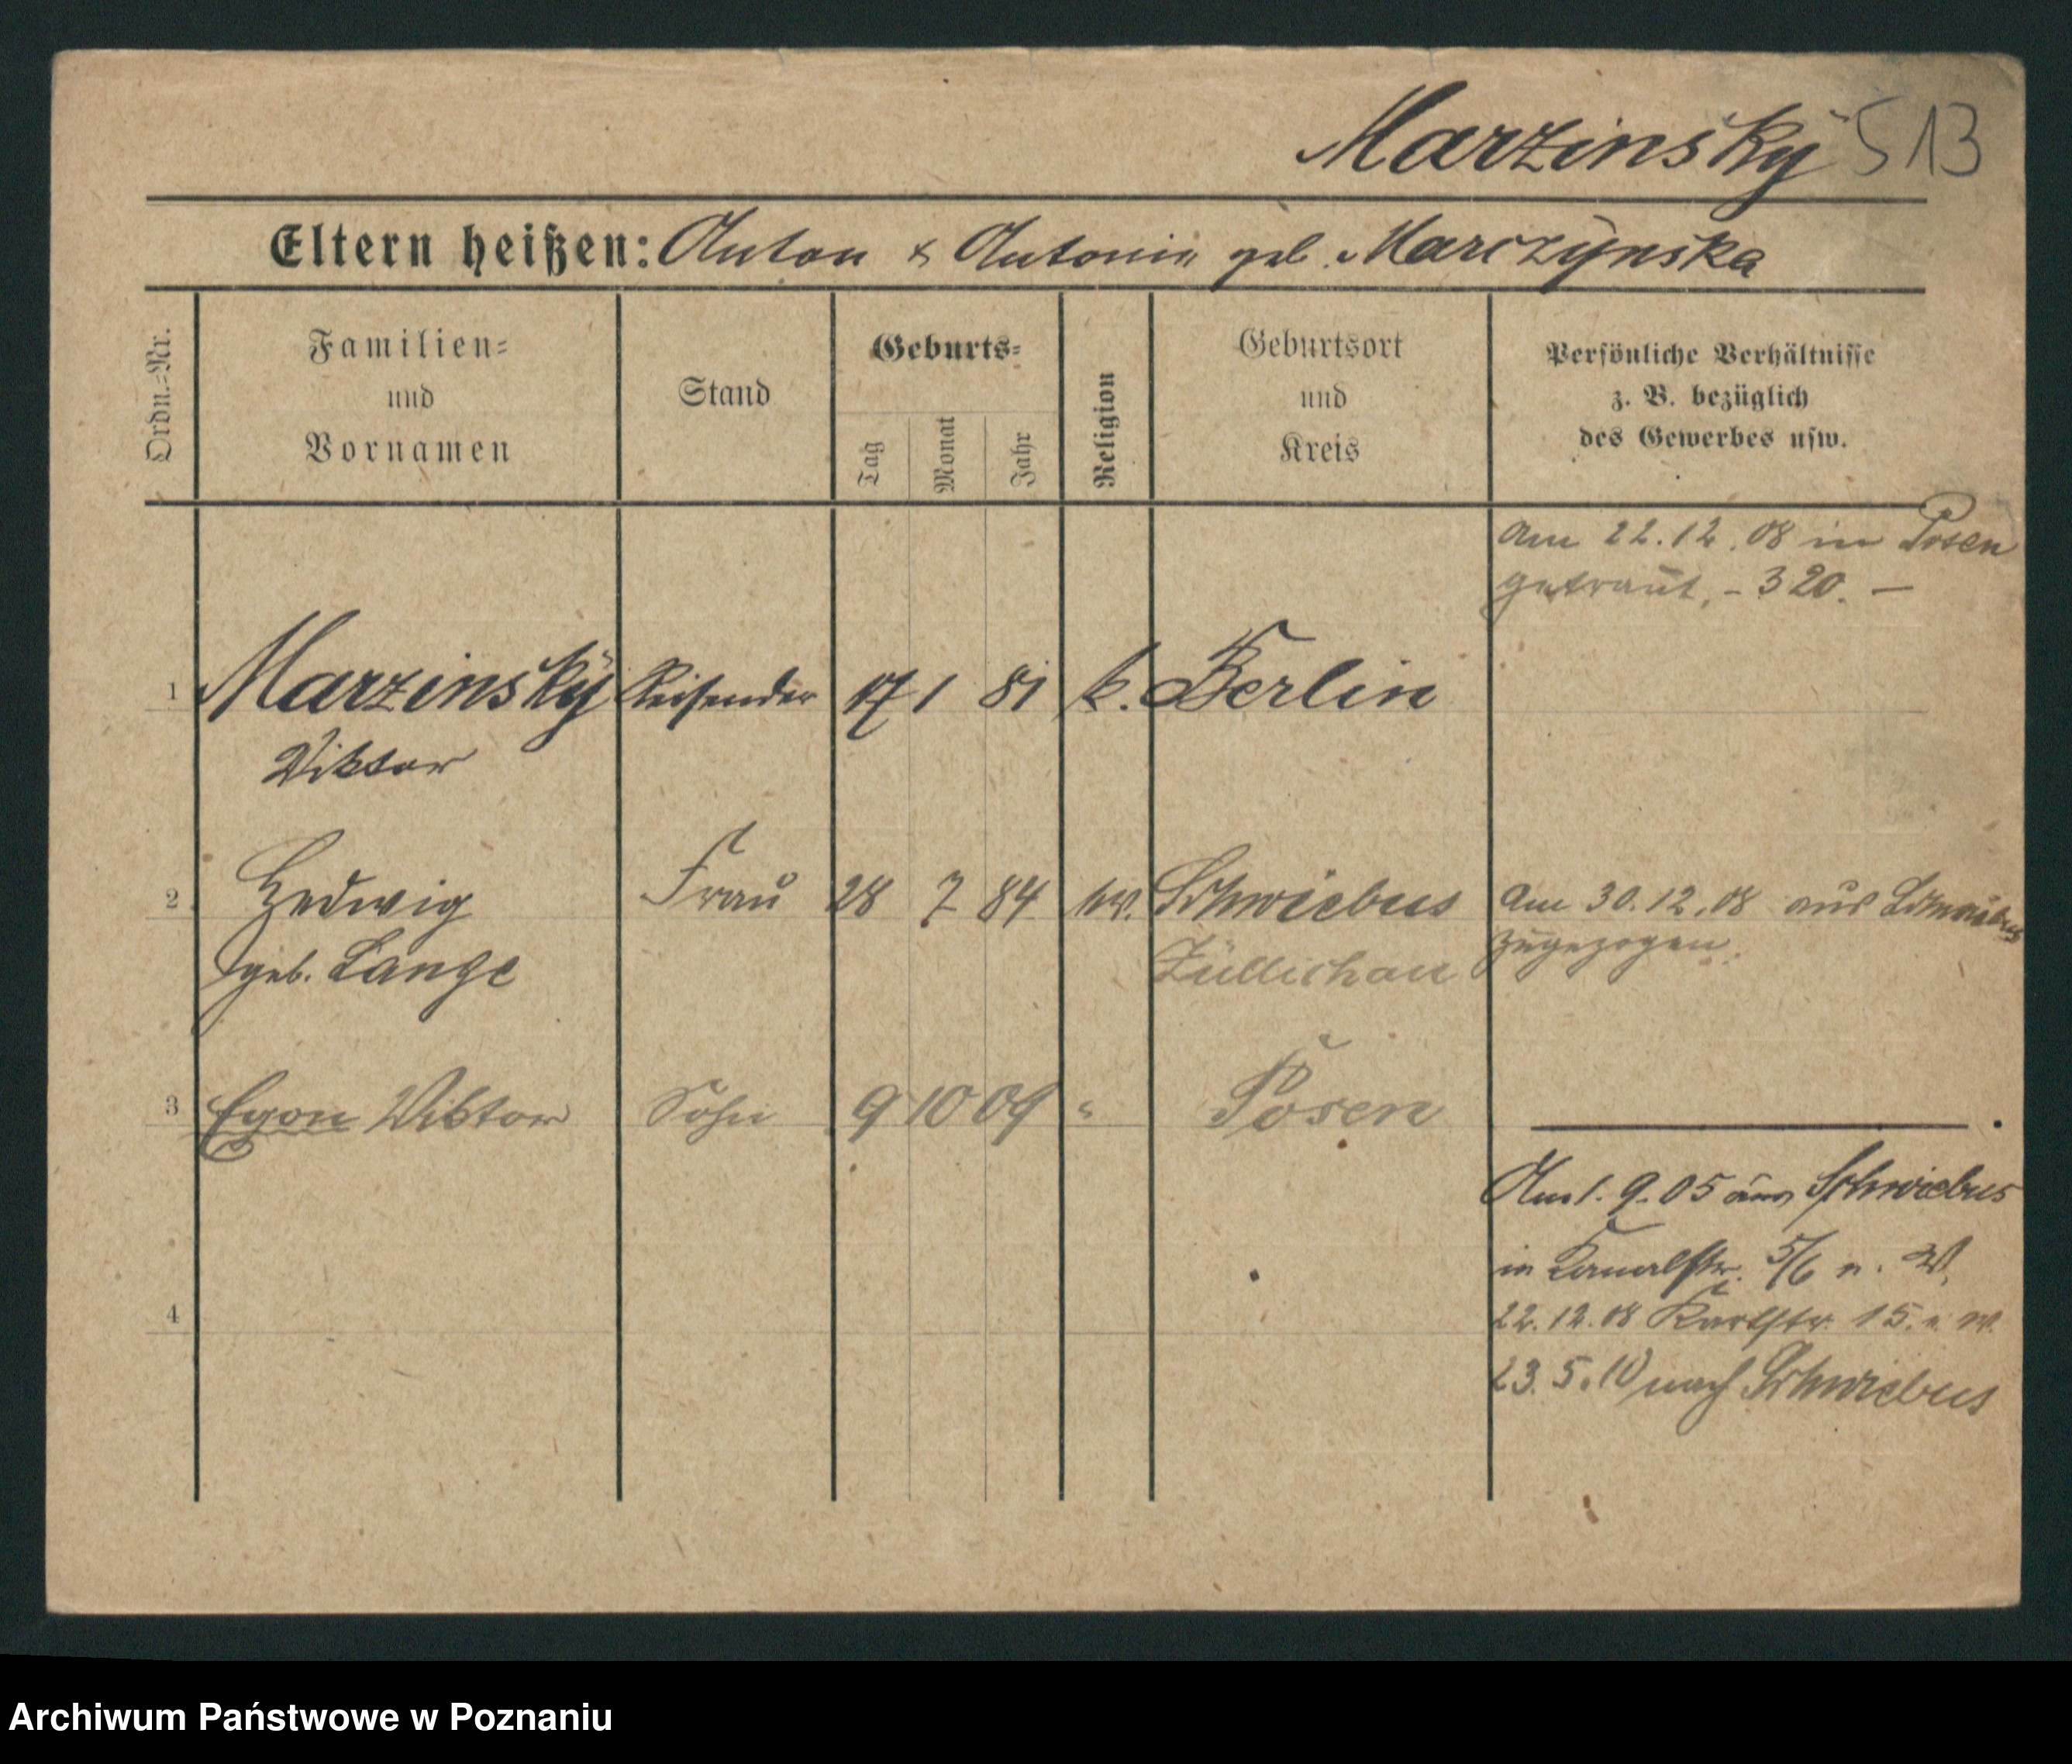 Marzinsky 513
Eltern heißen: Anton & Antonie geb. Marczynska
Ordn.=Nr.
Familien=
und
Vornamen
Stand
Geburts=
Tag
Monat
Jahr
Religion
Geburtsort
und
Kreis
Persönliche Verhältnisse
z. B. bezüglich
des Gewerbes usw.
am 22.12.08 in Posen
getraut. – 320. –
1 Marzinsky Reisender 17 1 81 k. Berlin
Viktor
2 Hedwig Frau 28 7 84 ev. Schwiebus am 30.12.08 aus Schwiebus
geb. Lange Züllichau zugezogen.
3 Egon Viktor Sohn 9 10 09 " Posen
Am 1. 9. 05 aus Schwiebus
in Kanalstr. 5/6 n. W.
4
22.12.08 Karlstr. 15. n. W.
23.5.10 nach Schwiebus
Archiwum Państwowe w Poznaniu